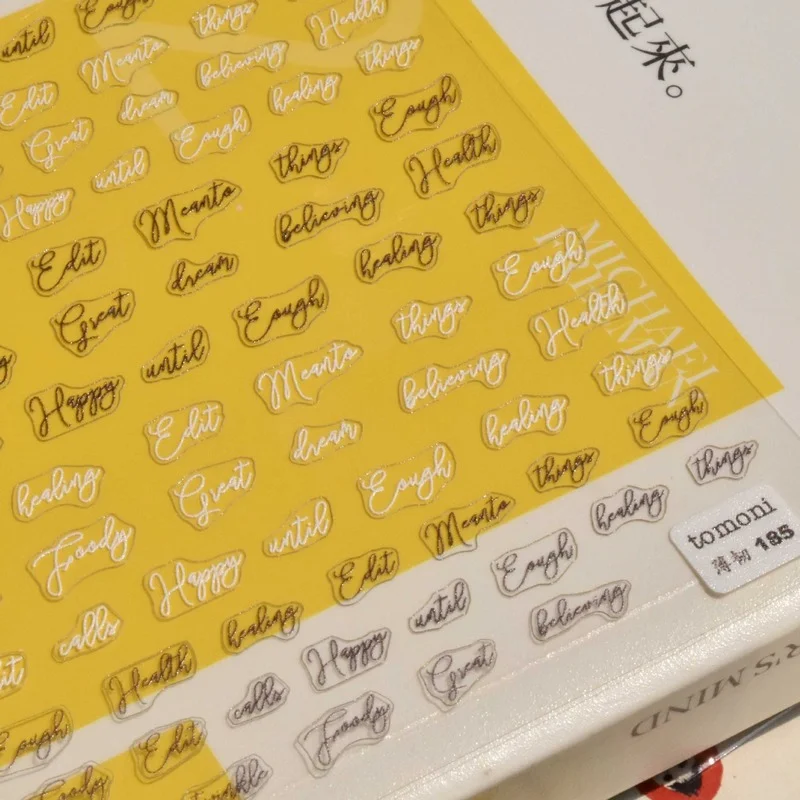 起來。
until
Eough
things
Health
Edit
Meanto
believing
things
Great
dream
healing
Happy
until
Eough
Meanto
things
Eough
Edit
dream
believing
Health
Great
Eough
healing
things
Happy
until
Meanto
things
Eough
Edit
dream
believing
Health
healing
Great
Eough
healing
things
Froody
Happy
until
Meanto
things
Eough
calls
healing
Edit
Eough
healing
things
Health
calls
Happy
until
believing
Eough
Edit
Froody
Great
twinkle
MICHAEL
tomoni
薄韌 185
R'S MIND